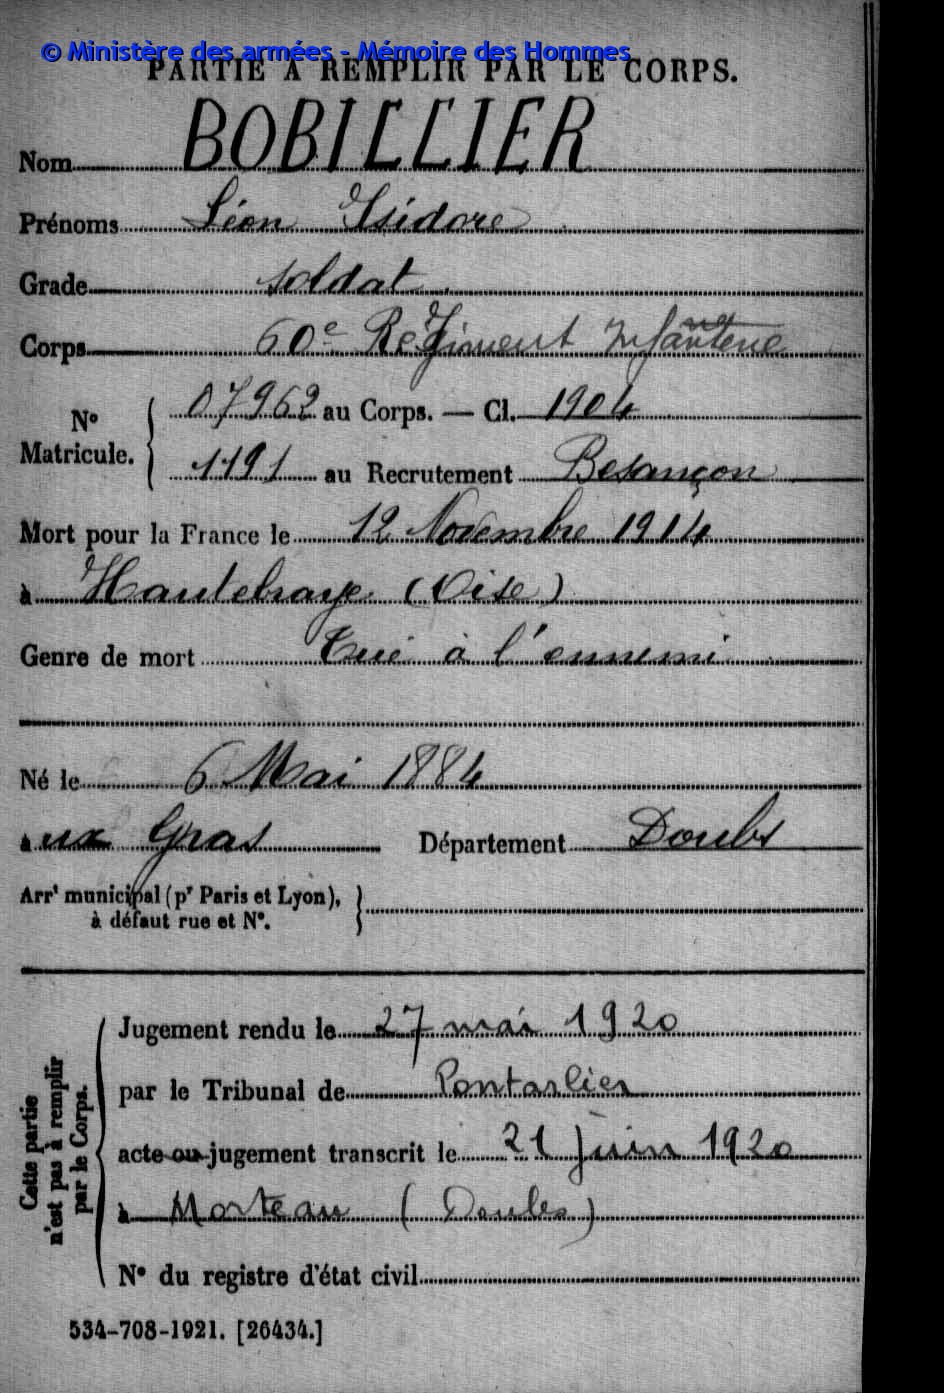 © Ministère des armées - Mémoire des Hommes
PARTIE À REMPLIR PAR LE CORPS.
Nom BOBILLIER
Prénoms Léon Isidore
Grade soldat
Corps 60e Régiment Infanterie
No Matricule. { 07962 au Corps. — Cl. 1904
1191 au Recrutement Besançon
Mort pour la France le 12 Novembre 1914
à Hautebraye (Oise)
Genre de mort Tué à l'ennemi
Né le 6 Mai 1884
aux Gras Département Doubs
Arrt municipal (pr Paris et Lyon),
à défaut rue et No. }
Cette partie n'est pas à remplir par le Corps. {
Jugement rendu le 27 mai 1920
par le Tribunal de Pontarlier
acte ou jugement transcrit le 21 juin 1920
à Morteau (Doubs)
No du registre d'état civil
534-708-1921. [26434.]